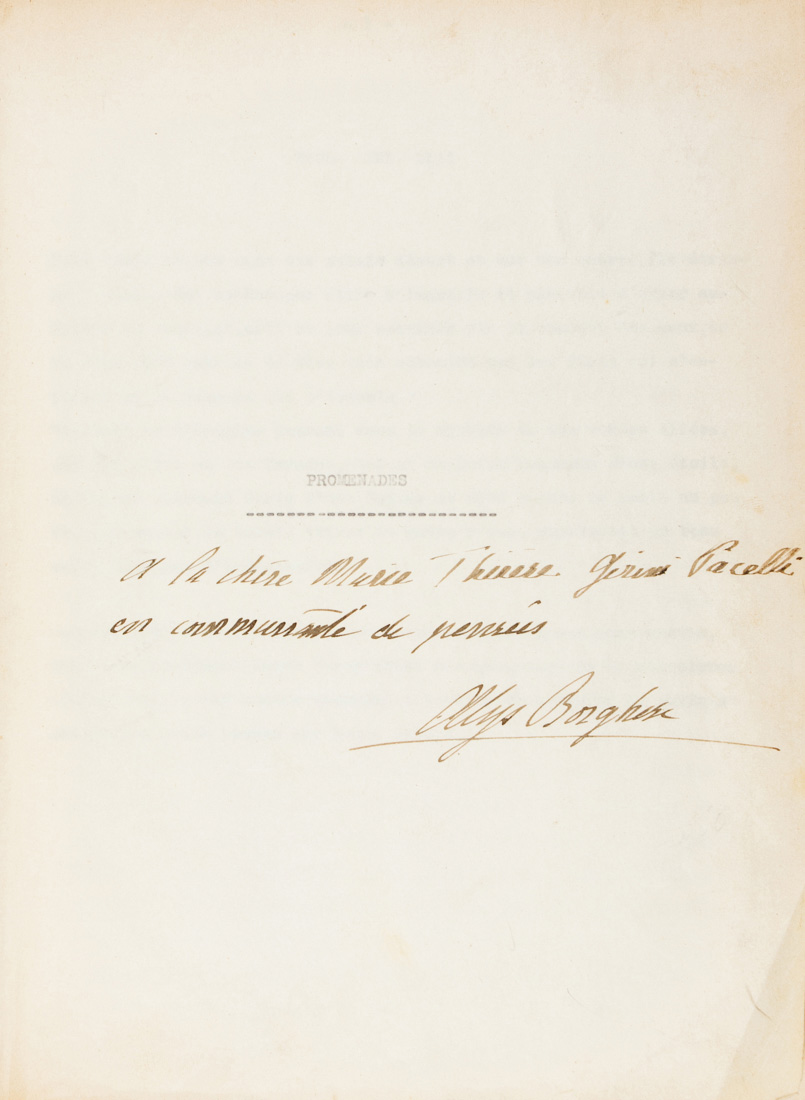 PROMENADES
A la chère Marie Thérèse Pacelli
en communauté de pensées
Alys Borghese